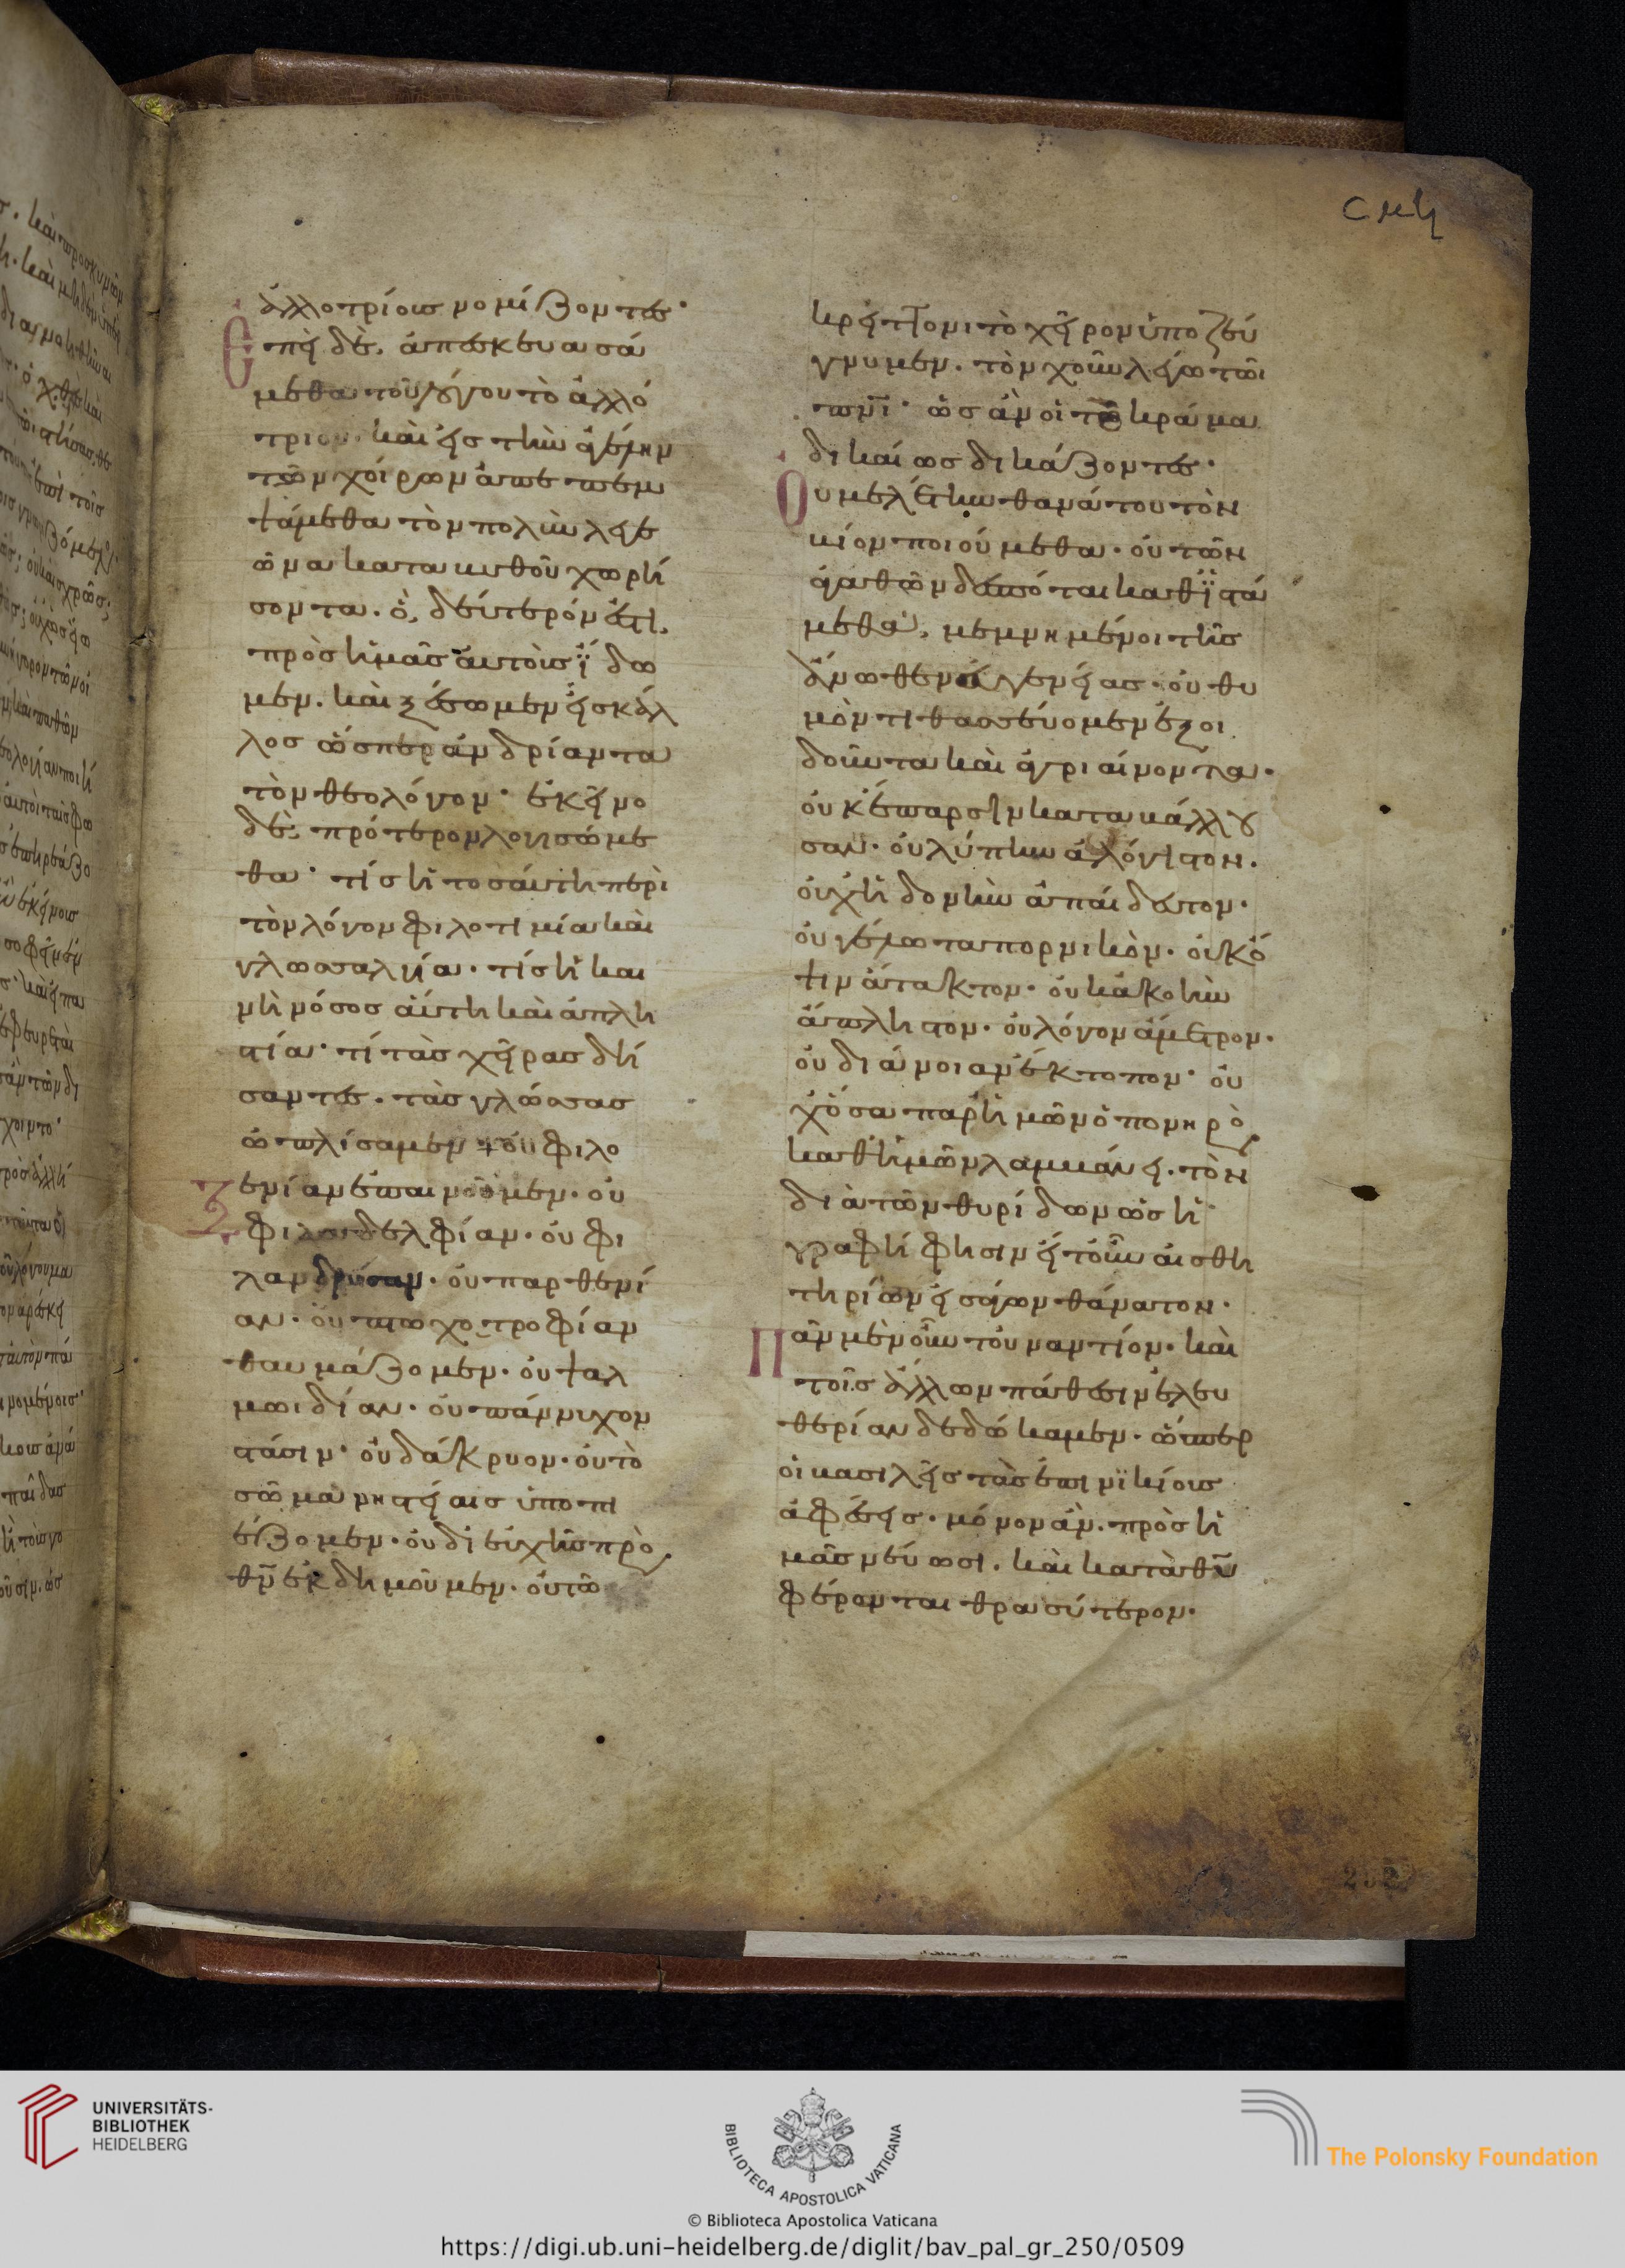 σμη
ἀλλοτρίοις νομίζοντες·
Ἐπεὶ δὲ, ἀπεσκευασά
μεθα τοῦ λόγου τὸ ἀλλό
τριον· καὶ εἰς τὴν ἀγέλην
τῶν χοίρων ἀπεπεμ
ψάμεθα τὸν πολὺν λεγε
ῶνα κατὰ βυθοῦ χωρή
σοντα. ὃ, δεύτερόν ἐστι,
πρὸς ἡμᾶς αὐτοὺς ἴδω
μεν. καὶ ξέσωμεν εἰς κάλ
λος ὥσπερ ἀνδρίαντα
τὸν θεολόγον· ἐκεῖνο
δὲ, πρότερον λογισώμε
θα· τίς ἡ τοσαύτη περὶ
τὸν λόγον φιλοτιμία καὶ
γλωσσαλγία· τίς ἡ και
νὴ νόσος αὕτη καὶ ἀπλη
στία· τί τὰς χεῖρας δή
σαντες. τὰς γλώσσας
ὡπλίσαμεν· οὐ φιλο
ξενίαν ἐπαινοῦμεν· οὐ
φιλαδελφίαν· οὐ φι
λανδρίαν· οὐ παρθενί
αν· οὐ πτωχοτροφίαν
θαυμάζομεν· οὐ ψαλ
μωιδίαν· οὐ πάννυχον
στάσιν· οὐ δάκρυον· οὐ τὸ
σῶμα νηστείαις ὑποπι
έζομεν· οὐ δι εὐχῆς πρὸς
θν̄ ἐκδημοῦμεν· οὐ τῶ
κρείττονι τὸ χεῖρον ὑποζεύ
γνυμεν. τὸν χοῦν λέγω τῶι
πνῑ· ὡς ἂν οἱ τῶ κράμα
δικαίως δικάζοντες·
Οὐ μελέτην θανάτου τὸν
βίον ποιούμεθα· οὐ τῶν
παθῶν δεσπόται καθϊστά
μεθα, μεμνημένοι τῆς
ἄνωθεν εὐγενείας· οὐ θυ
μὸν τιθασσεύομεν ἐξοι
δοῦντα καὶ ἀγριαίνοντα·
οὐκ ἔπαρσιν καταβάλλου
σαν· οὐ λύπην ἀλόγιστον.
οὐχ ἡδονὴν ἀπαίδευτον·
οὐ γέλωτα πορνικόν· οὐκ ὄ
ψιν ἄτακτον· οὐκ ἀκοὴν
ἄπληστον· οὐ λόγον ἄμετρον·
οὐ διάνοιαν ἔκτοπον· οὐ
χ ὅσα παρ ἡμῶν ὁ πονηρὸς
καθ ἡμῶν λαμβάνει. τὸν
διὰ τῶν θυρίδων ὡς ἡ
γραφή φησιν εἴτουν αἰσθη
τηρίων εἰσάγων θάνατον·
Πᾶν μὲν οὖν τοὐναντίον· καὶ
τοῖς ἄλλων πάθεσιν ἐλευ
θερίαν δεδώκαμεν· ὥσπερ
οἱ βασιλεῖς τὰς ἐπινϊκίους
ἀφέσεις· μόνον ἂν. πρὸς ἡ
μᾶς νεύωσι. καὶ κατὰ θῡ
φέρονται θρασύτερον·
UNIVERSITÄTS-
BIBLIOTHEK
HEIDELBERG
BIBLIOTECA APOSTOLICA VATICANA
© Biblioteca Apostolica Vaticana
The Polonsky Foundation
https://digi.ub.uni-heidelberg.de/diglit/bav_pal_gr_250/0509